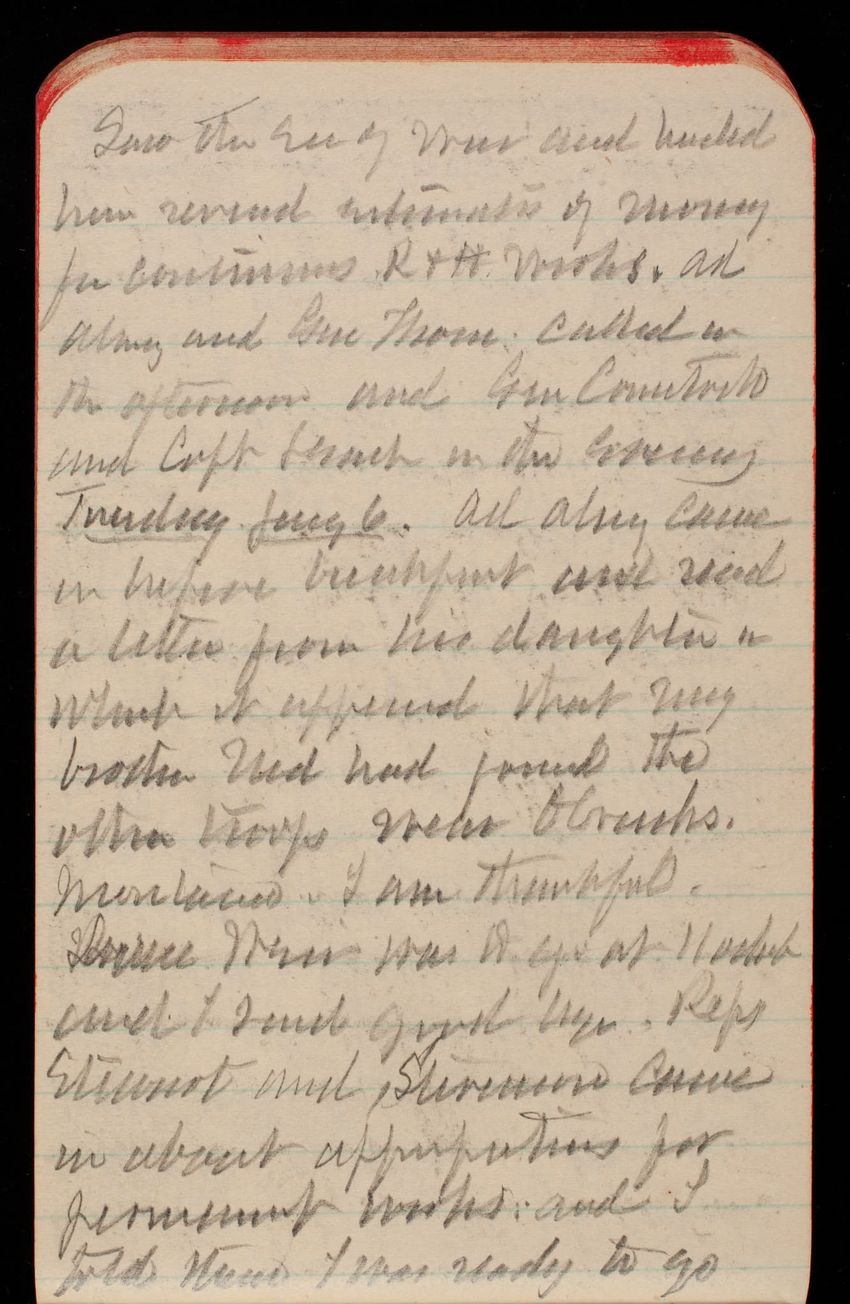 Saw the Sec of War and handed
him revised estimates of money
for continuous R & H. Works. Ad
Alney and Gen Thom. called in
the afternoon and Gen Comstock
and Capt in the evening
Tuesday Jany 6. Ad Alney came
in before breakfast and read
a letter from his daughter in
which it appeared that my
brother Ned had joined the
other troops near Obrichs.
I am thankful.
Weir was to go at 11 oclock
and I said good bye. Reps
and Stevenson came
in about appropriations for
permanent works: and I
told them I was ready to go